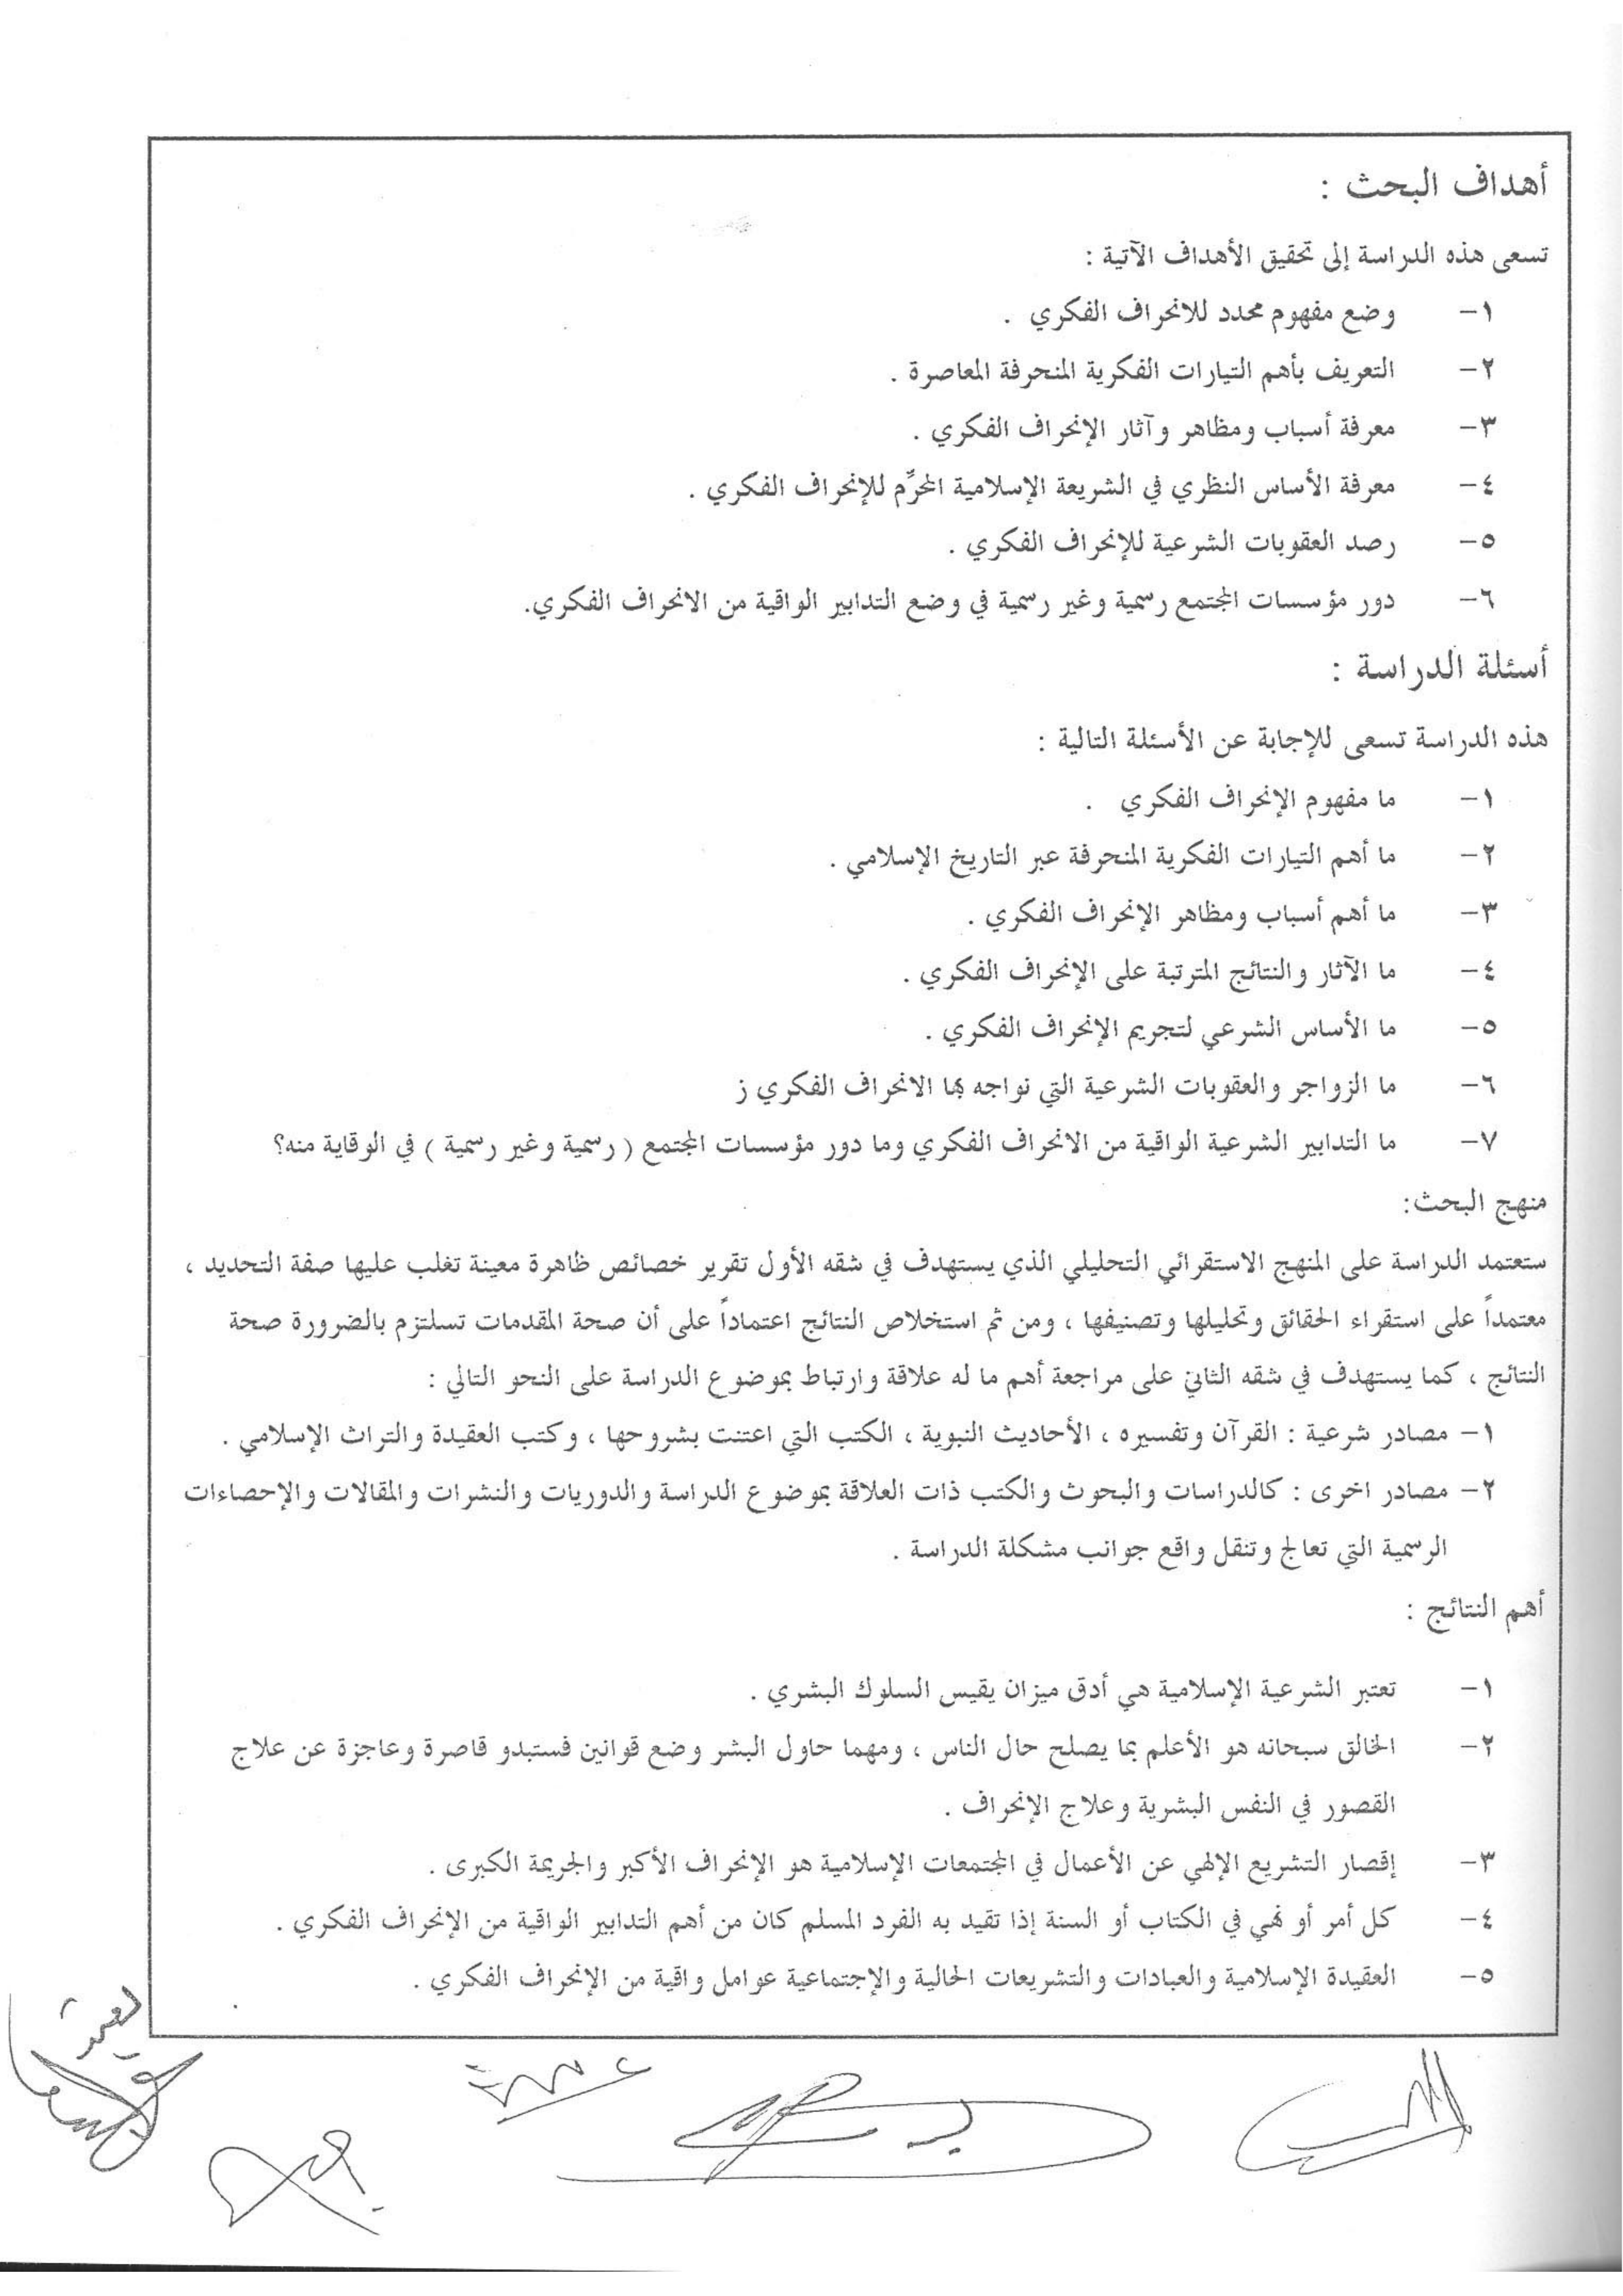 أهداف البحث :
تسعى هذه الدراسة إلى تحقيق الأهداف الآتية :
١- وضع مفهوم محدد للانحراف الفكري .
٢- التعريف بأهم التيارات الفكرية المنحرفة المعاصرة .
٣- معرفة أسباب ومظاهر وآثار الإنحراف الفكري .
٤- معرفة الأساس النظري في الشريعة الإسلامية المحرِّم للإنحراف الفكري .
٥- رصد العقوبات الشرعية للإنحراف الفكري .
٦- دور مؤسسات المجتمع رسمية وغير رسمية في وضع التدابير الواقية من الانحراف الفكري.
أسئلة الدراسة :
هذه الدراسة تسعى للإجابة عن الأسئلة التالية :
١- ما مفهوم الإنحراف الفكري .
٢- ما أهم التيارات الفكرية المنحرفة عبر التاريخ الإسلامي .
٣- ما أهم أسباب ومظاهر الإنحراف الفكري .
٤- ما الآثار والنتائج المترتبة على الإنحراف الفكري .
٥- ما الأساس الشرعي لتجريم الإنحراف الفكري .
٦- ما الزواجر والعقوبات الشرعية التي نواجه بها الانحراف الفكري ز
٧- ما التدابير الشرعية الواقية من الانحراف الفكري وما دور مؤسسات المجتمع ( رسمية وغير رسمية ) في الوقاية منه؟
منهج البحث:
ستعتمد الدراسة على المنهج الاستقرائي التحليلي الذي يستهدف في شقه الأول تقرير خصائص ظاهرة معينة تغلب عليها صفة التحديد ،
معتمداً على استقراء الحقائق وتحليلها وتصنيفها ، ومن ثم استخلاص النتائج اعتماداً على أن صحة المقدمات تسلتزم بالضرورة صحة
النتائج ، كما يستهدف في شقه الثاني على مراجعة أهم ما له علاقة وارتباط بموضوع الدراسة على النحو التالي :
١- مصادر شرعية : القرآن وتفسيره ، الأحاديث النبوية ، الكتب التي اعتنت بشروحها ، وكتب العقيدة والتراث الإسلامي .
٢- مصادر اخرى : كالدراسات والبحوث والكتب ذات العلاقة بموضوع الدراسة والدوريات والنشرات والمقالات والإحصاءات
الرسمية التي تعالج وتنقل واقع جوانب مشكلة الدراسة .
أهم النتائج :
١- تعتبر الشرعية الإسلامية هي أدق ميزان يقيس السلوك البشري .
٢- الخالق سبحانه هو الأعلم بما يصلح حال الناس ، ومهما حاول البشر وضع قوانين فستبدو قاصرة وعاجزة عن علاج
القصور في النفس البشرية وعلاج الإنحراف .
٣- إقصار التشريع الإلهي عن الأعمال في المجتمعات الإسلامية هو الإنحراف الأكبر والجريمة الكبرى .
٤- كل أمر أو نهي في الكتاب أو السنة إذا تقيد به الفرد المسلم كان من أهم التدابير الواقية من الإنحراف الفكري .
٥- العقيدة الإسلامية والعبادات والتشريعات الحالية والإجتماعية عوامل واقية من الإنحراف الفكري .